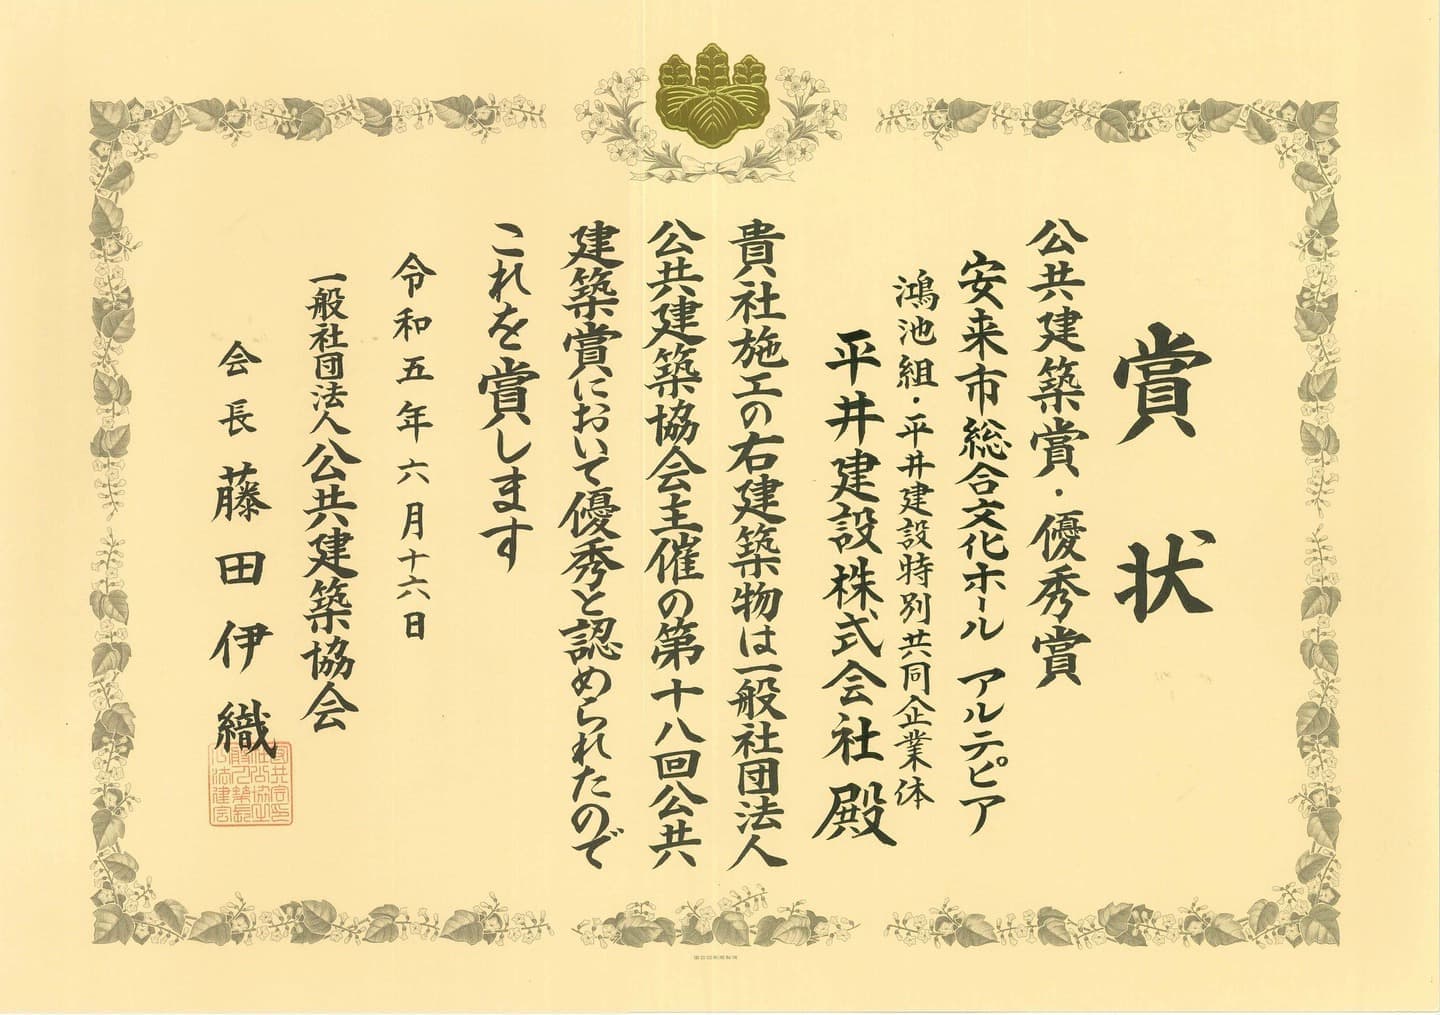 賞状
公共建築賞・優秀賞
安来市総合文化ホール アルテピア
鴻池組・平井建設特別共同企業体
平井建設株式会社 殿
貴社施工の右建築物は一般社団法人
公共建築協会主催の第十八回公共
建築賞において優秀と認められたので
これを賞します
令和五年六月十六日
一般社団法人公共建築協会
会長 藤田伊織